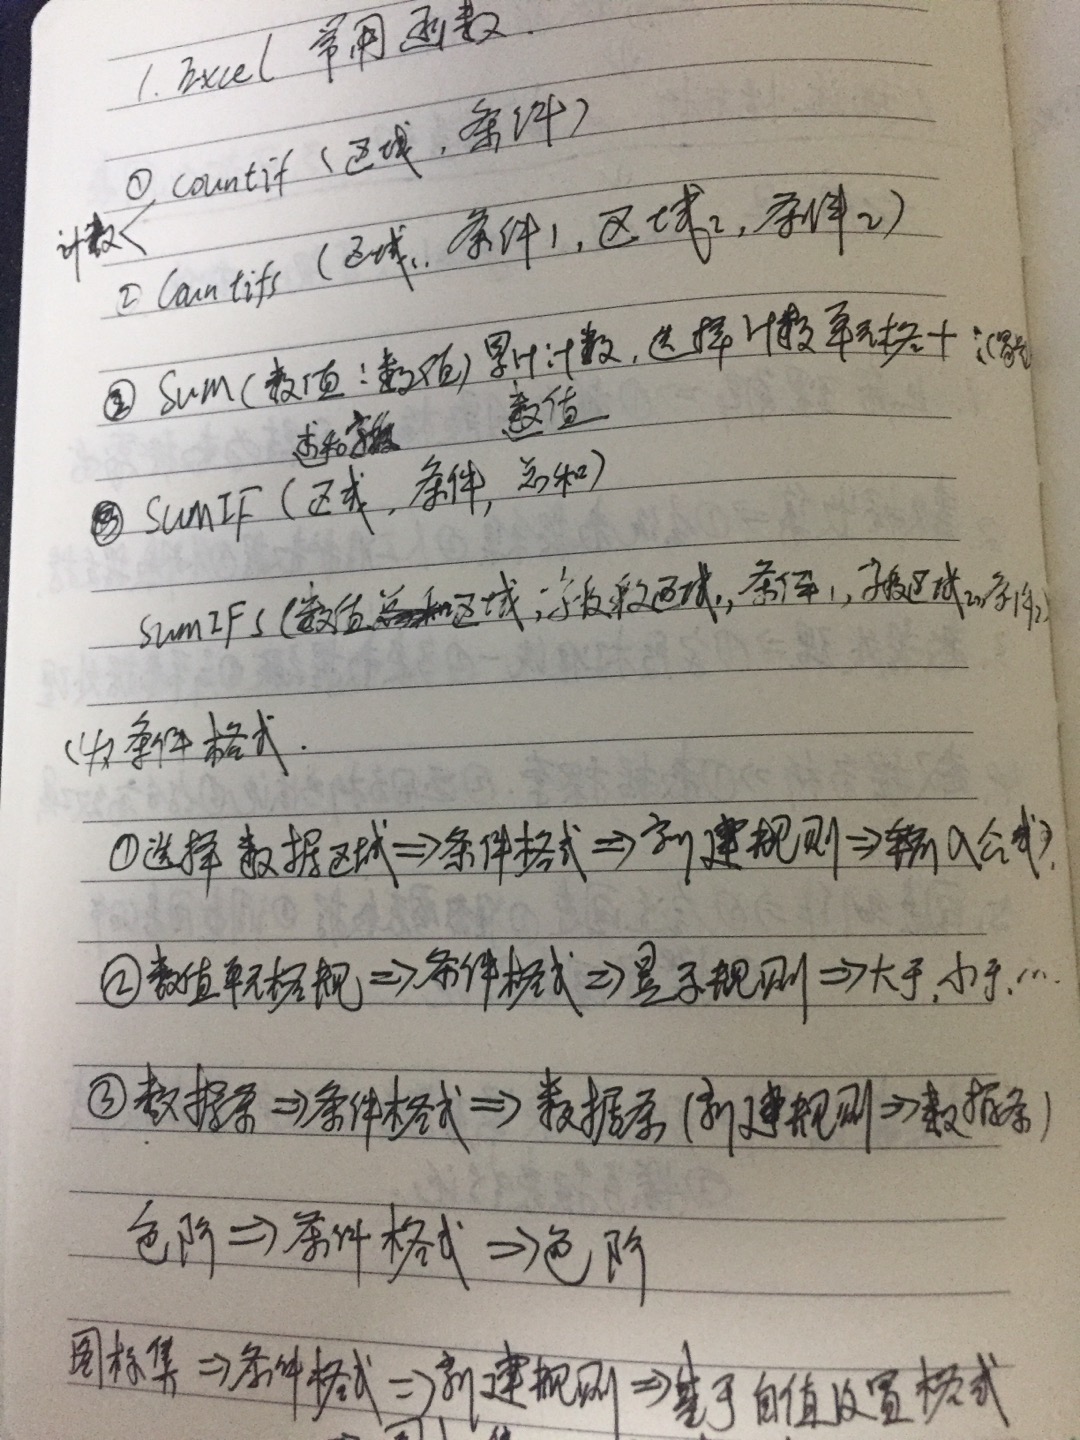 1. Excel 常用函数.
① countif (区域, 条件)
计数<
② Countifs (区域1, 条件1, 区域2, 条件2)
② Sum (数值:数值) 累计计数, 选择计数单元格+
求和字段 数值
③ SumIF (区域, 条件, 总和)
SumIFs (数值区域, 字段区域1, 条件1, 字段区域2, 条件2)
(4) 条件格式.
①选择数据区域⇒条件格式⇒新建规则⇒输入公式
②数值单元格规⇒条件格式⇒显示规则⇒大于,小于,…
③数据条⇒条件格式⇒数据条(新建规则⇒数据条)
色阶⇒条件格式⇒色阶
图标集⇒条件格式⇒新建规则⇒基于自值设置格式